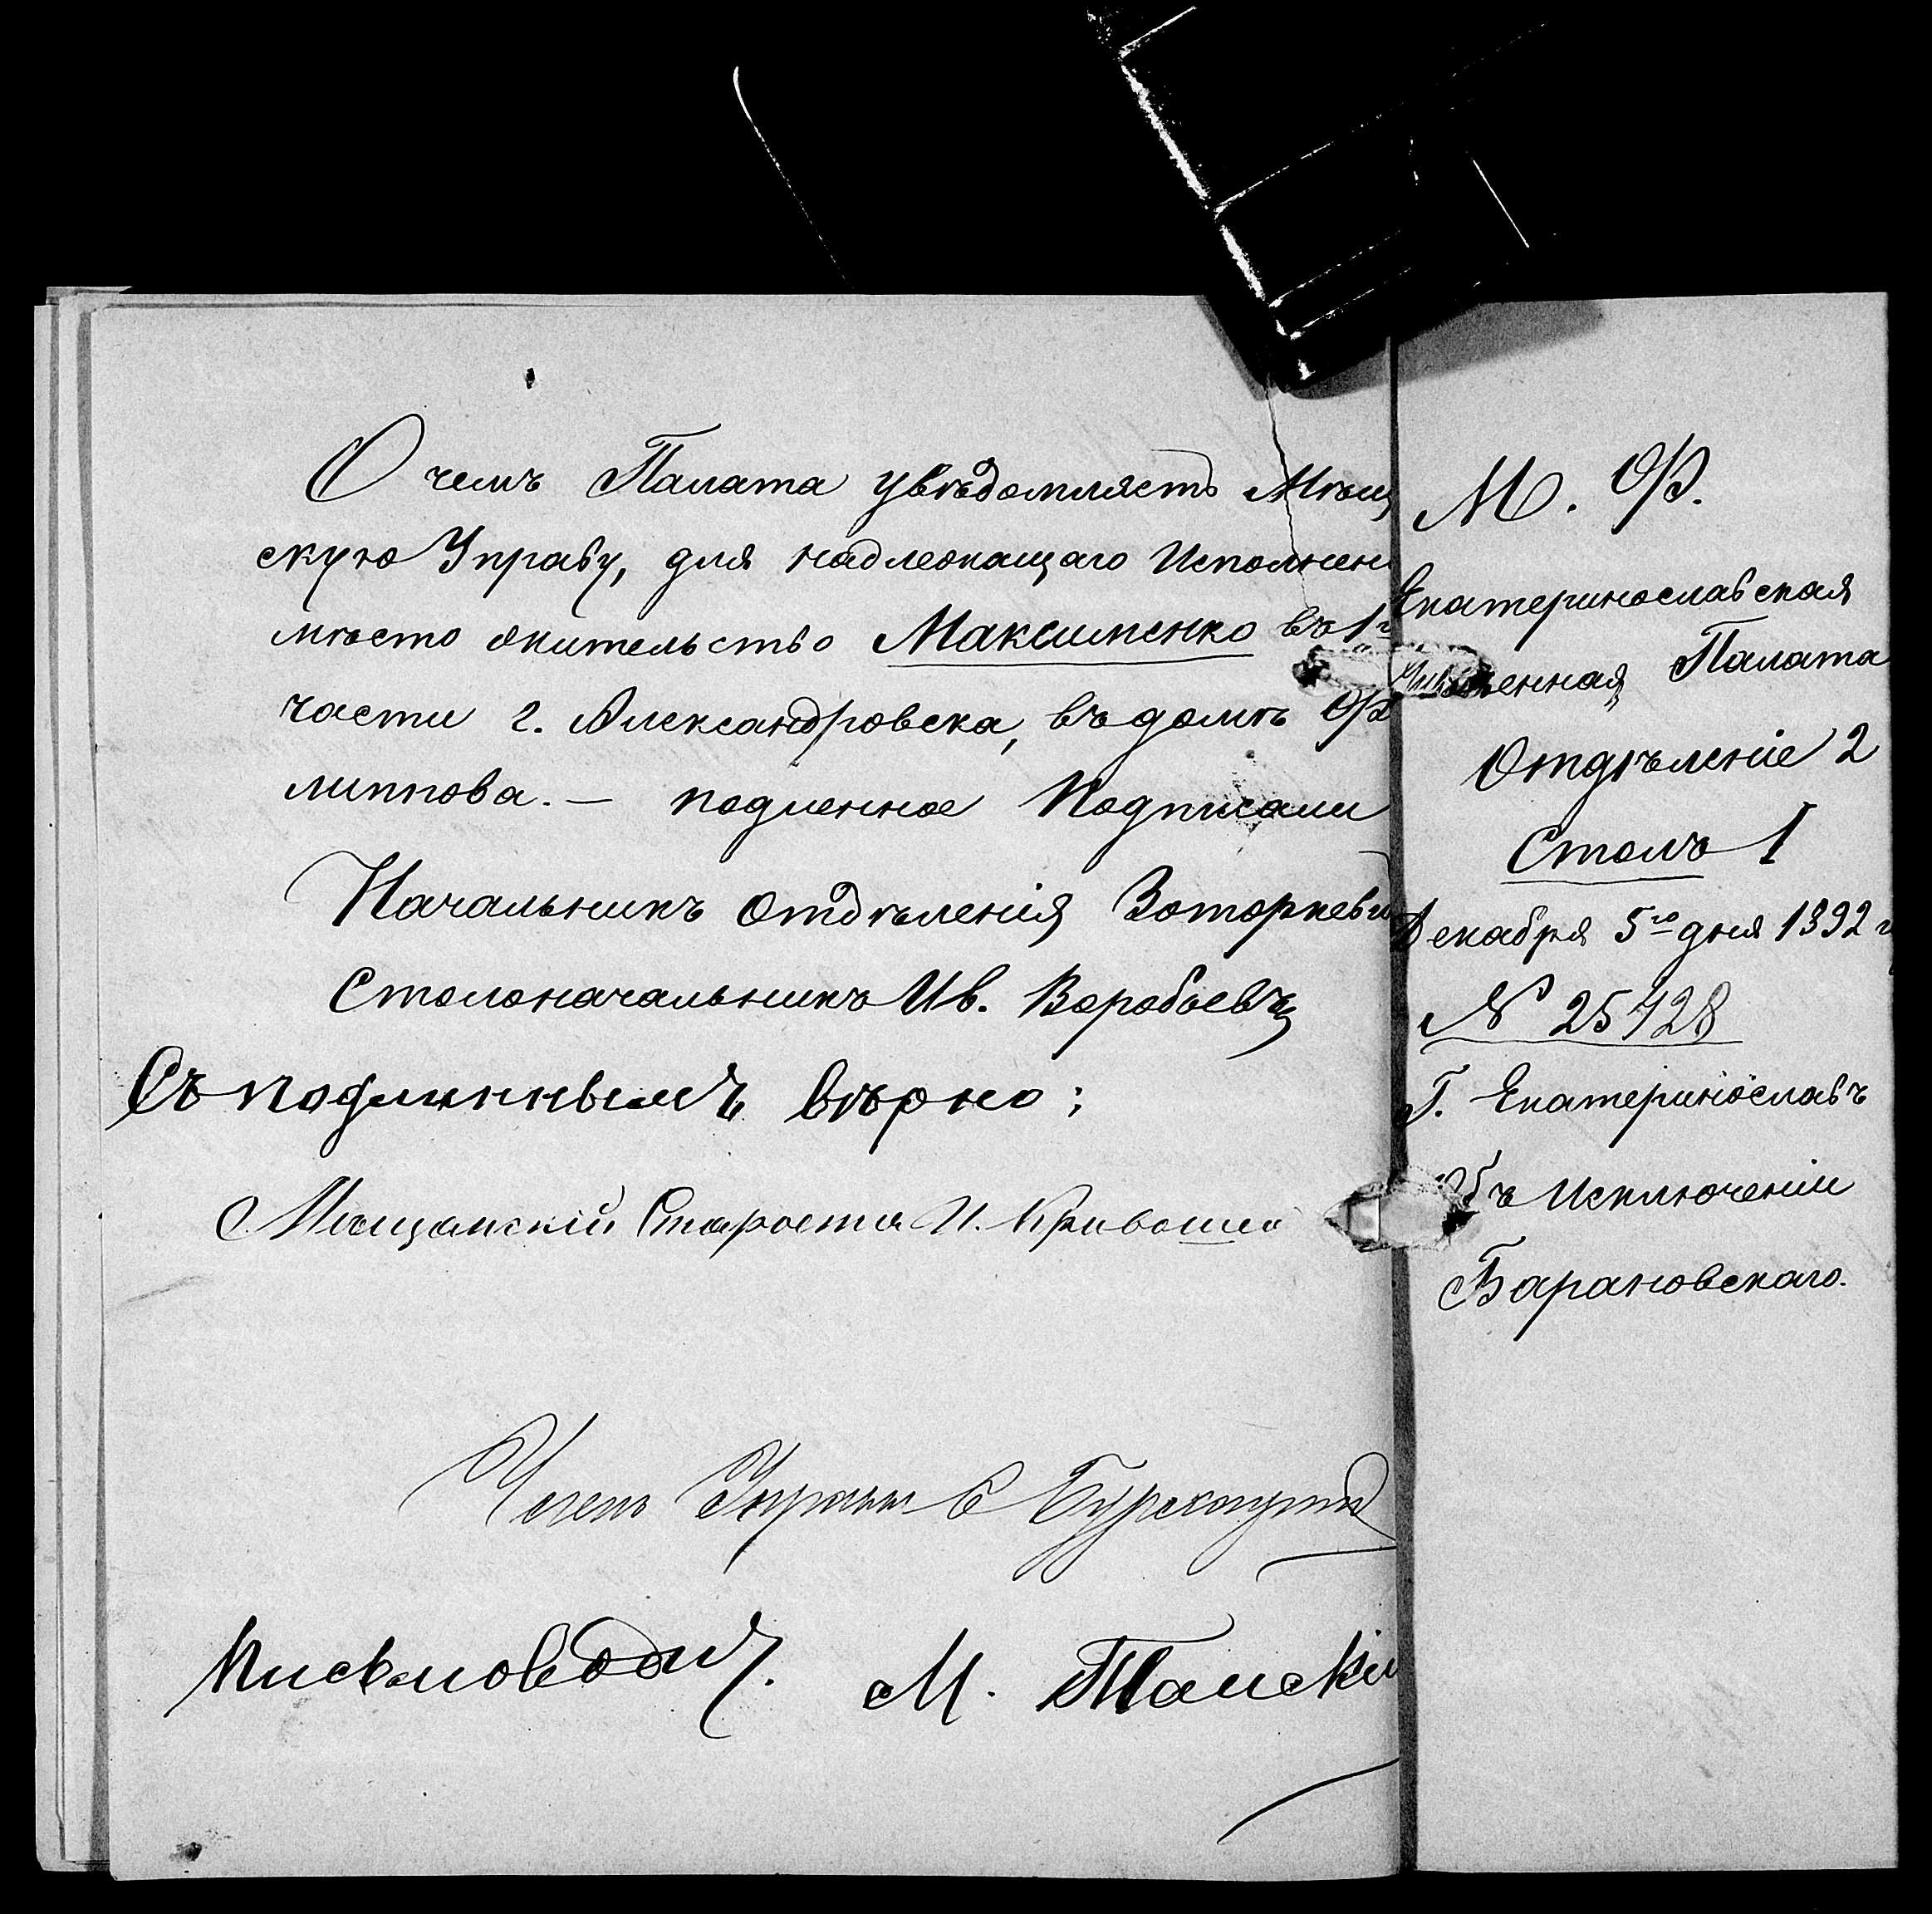 О чемъ Палата увѣдомляетъ Мѣщ
скую Управу, для надлежащаго Исполнен
мѣсто жительство Максименко въ 1й
части г. Александровска, въ домѣ Фи
липпова. — подленное Подписали
Начальникъ Отдѣленія
Столоначальникъ Ив. Воробьевъ
Съ подлиннымъ вѣрно:
Мѣщанскій Староста И. Кривошей
Членъ Управы
Письмоводит. М. Танскій
М. Ф.
Екатеринославская
Палата
Отдѣленіе 2
Столъ 1
Декабря 5го дня 1892 г
№ 25428
Г. Екатеринославъ
Объ Исключеніи
Барановскаго.